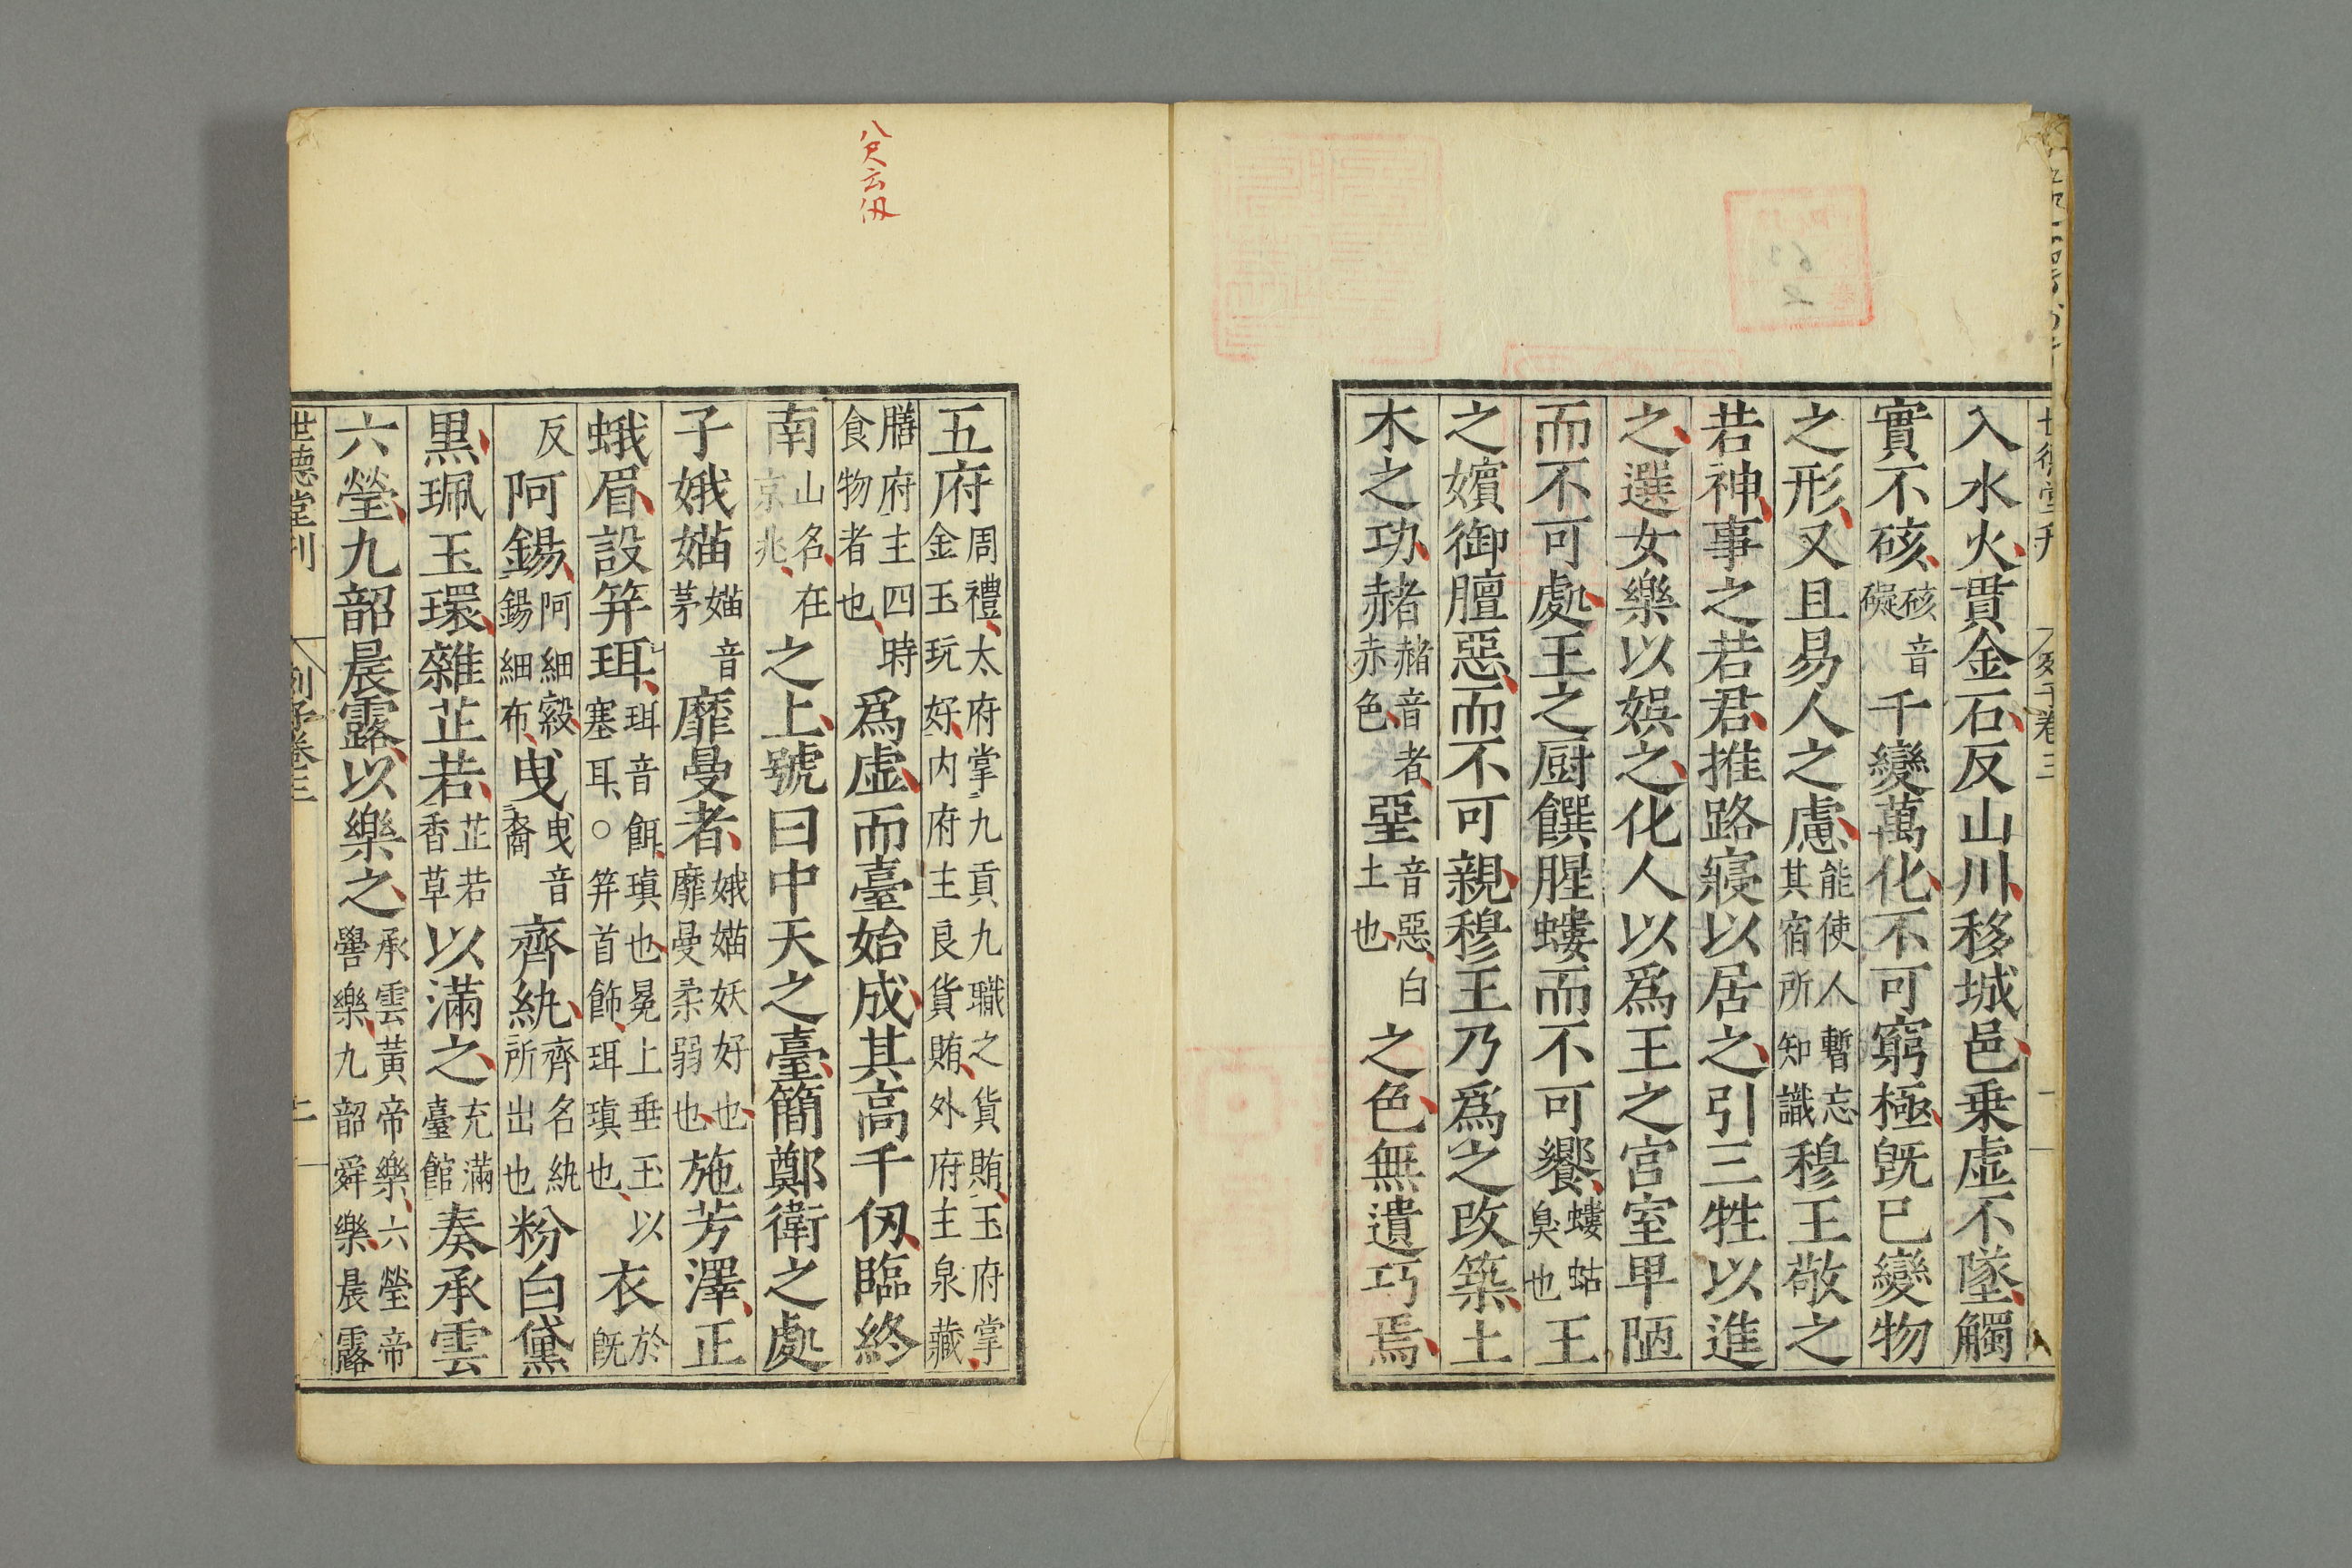 世德堂刋 列子卷三 一
入水火貫金石反山川移城邑乗虚不墜觸
實不硋硋音礙千變萬化不可窮極旣已變物
之形又且易人之慮能使人暫忘其宿所知識穆王敬之
若神事之若君推路寢以居之引三牲以進
之選女樂以娛之化人以爲王之宫室卑陋
而不可處王之厨饌腥螻而不可饗螻蛄臭也王
之嬪御膻惡而不可親穆王乃爲之改築土
木之功赭赭音者赤色堊音惡白土也之色無遺巧焉
八尺云仭
五府周禮太府掌九貢九職之貨賄玉府掌金玉玩好内府主良貨賄外府主泉藏
膳府主四時食物者也爲虚而臺始成其高千仭臨終
南山名在京兆之上號曰中天之臺簡鄭衛之處
子娥媌媌音茅靡曼者娥媌妖好也靡曼柔弱也施芳澤正
蛾眉設笄珥珥音餌瑱也冕上垂玉以塞耳○笄首飾珥瑱也衣於旣
反阿錫阿細縠錫細布曳曳音裔齊紈齊名紈所出也粉白黛
黒珮玉環雜芷若芷若香草以滿之充滿臺館奏承雲
六瑩九韶晨露以樂之承雲黄帝樂六瑩帝嚳樂九韶舜樂晨露
世德堂刋 列子卷三 二